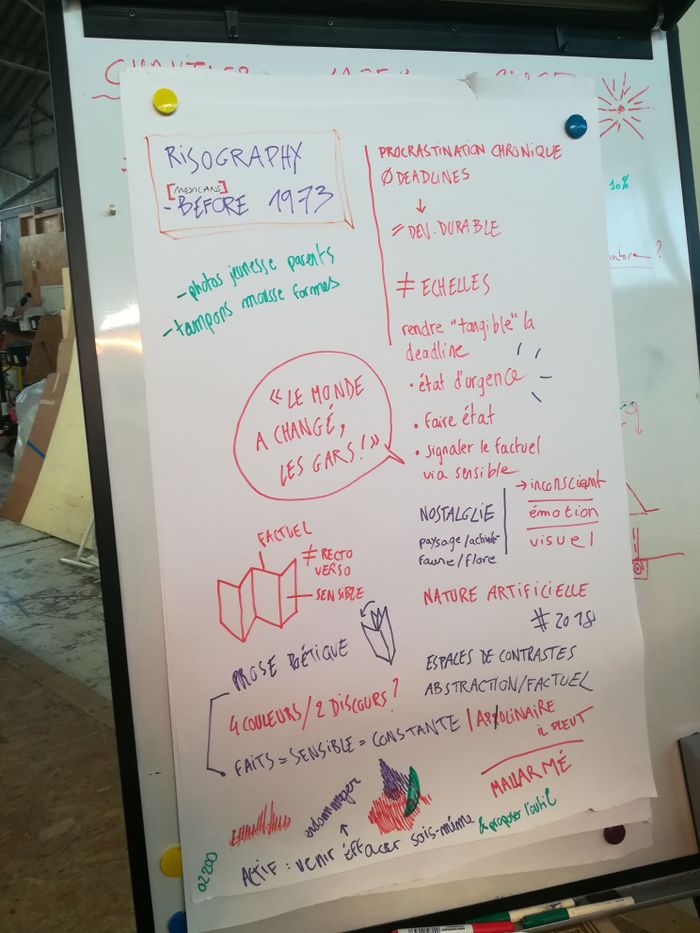 RISOGRAPHY
[MEXICANS]
- BEFORE 1973
- photos jeunesse parents
- tampons mousse formes
PROCRASTINATION CHRONIQUE
Ø DEADLINES
↓
≠ DEV. DURABLE
≠ ECHELLES
rendre "tangible" la
deadline
• état d'urgence
• faire état
• signaler le factuel
via sensible
« LE MONDE
A CHANGÉ,
LES GARS! »
NOSTALGLIE
paysage/activité
faune/flore
→ inconscient
émotion
visuel
FACTUEL
≠ RECTO
VERSO
SENSIBLE
NATURE ARTIFICIELLE
#2018
PROSE POÉTIQUE
ESPACES DE CONTRASTES
ABSTRACTION/FACTUEL
4 COULEURS/2 DISCOURS?
FAITS = SENSIBLE = CONSTANTE
| APPOLINAIRE
IL PLEUT
MALLARMÉ
endommager
↑
ACTIF : venir EFFACER sois-même & proposer l'outil
10%
?